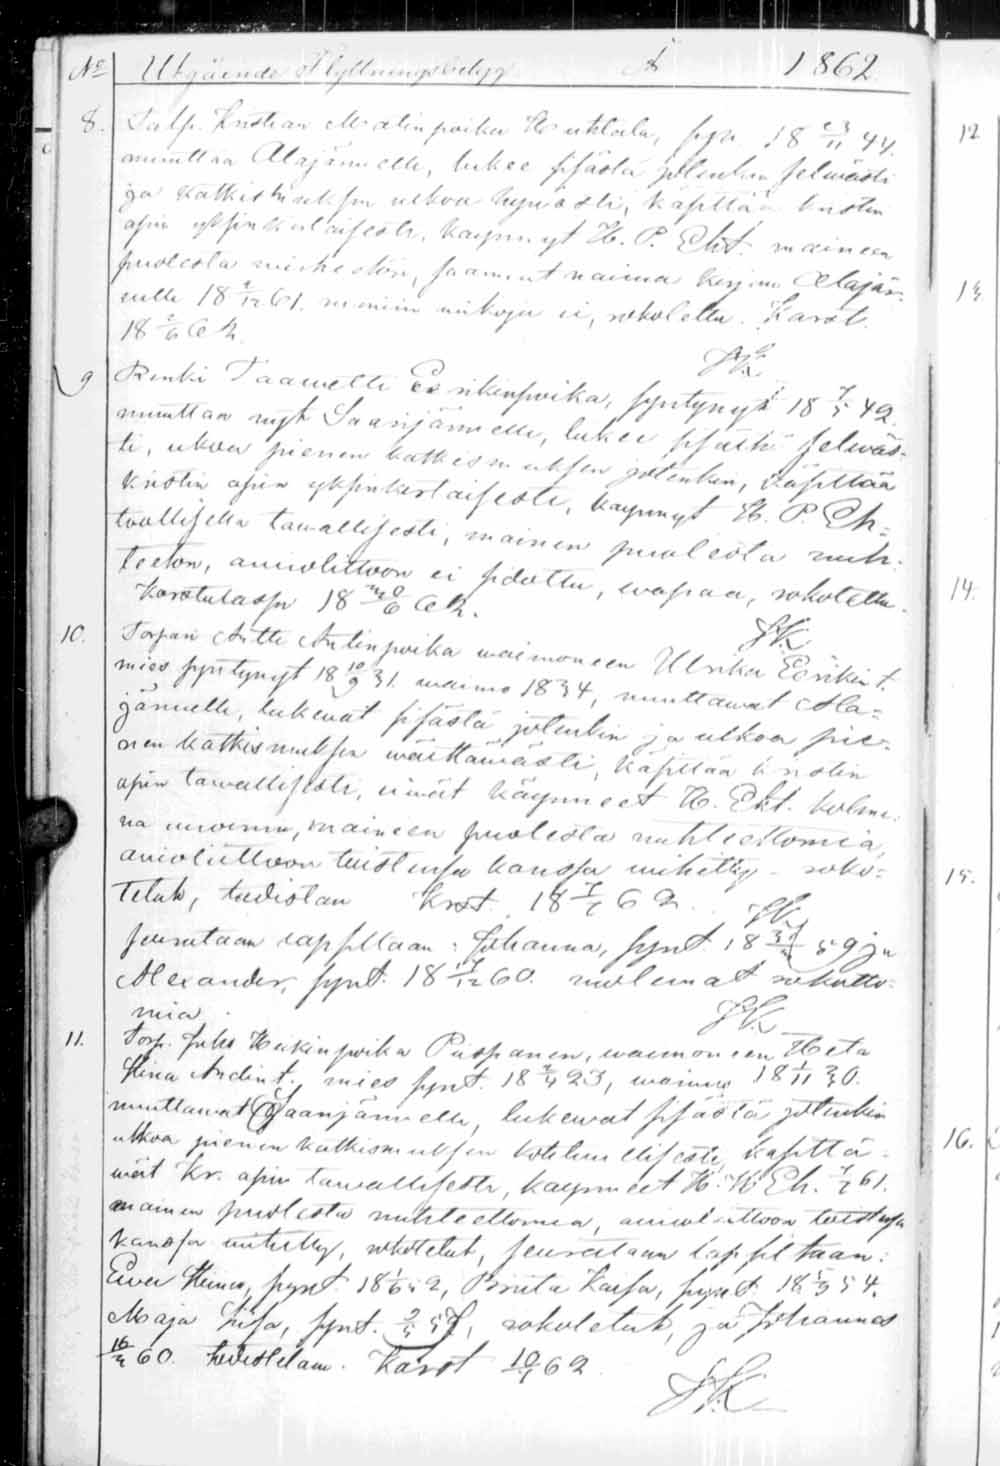 No Utgående Flyttningsbetyg Å 1862
8. Talp. Kristian Matinpoika Huhtala, syn. 18 23/11 44.
muuttaa Alajärwelle, lukee sisästä jotenkin selwästi
ja katkismuksen ulkoa hywästi, käsittää kristin
opin yksinkertaisesti, käynnyt H. P. Eht. maineen
puolesta nuhteetön, saanunt naima kirjan Alajär-
welle 18 /12 61. muuin aikoja ei, rokolettu. Karst.
18 /6 62.
9 Renki Taawetti Eerikinpoika, syntynyt 18 7/5 42.
muuttaa nyt Saarijärwelle, lukee sisältä selwäs-
ti, ulkoa pienen katkismuksen jotenkin, käsittää
kristin opin yksinkertaisesti, käynnyt H. P. Eh-
toollisella tawallisesti, mainen puolesta nuh-
teeton, awioliittoon ei sidottu, wapaa, rokolettu.
Karstulassa 18 /6 62.
10. Torpari Antti Antinpoika waimoneen Ulrika Eerikin t.
mies syntynyt 18 10/9 31. waimo 1834, muuttawat Ala-
järwelle, lukewat sisästä jotenkin ja ulkoa pie-
nen katkismuksen wälttäwästi, käsittää kristin
opin tawallisesti, eiwät käynneet H. Eht. kolme-
na wuonna, maineen puolesta nuhteettomia,
awioliittoon toistensa kanssa wihetty - roko-
telut, todistaa Krst. 18 62.
seurataan lapsiltaan: Johanna, synt. 18 59 ja
Alexander, synt. 18 /12 60. molemat rokotto-
mia.
11. Torp. Juho Heikinpoika Piispanen, waimoneen Heta
Stina Andint. mies synt. 18 /4 23, waimo 18 1/11 30.
muuttawat Saarijärwelle, lukewat sisästä jotenkin
ulkoa pienen katkismuksen kohtuullisesti, käsittä-
wät Kr. opin tawallisesti, käynneet H. H. Eh. 61.
mainen puolesta nuhteettomia, awioliittoon toistensa
kanssa wihitty, rokotelut, seurataan lapsiltaan:
Ewa Stina, synt. 18 1/6 52, Briita Kaisa, synt. 18 5/3 54.
Maja Lisa, synt. 57, rokoletut, ja Johannes
60. todistetaan. Karst 62.
12
13.
14.
15.
16.